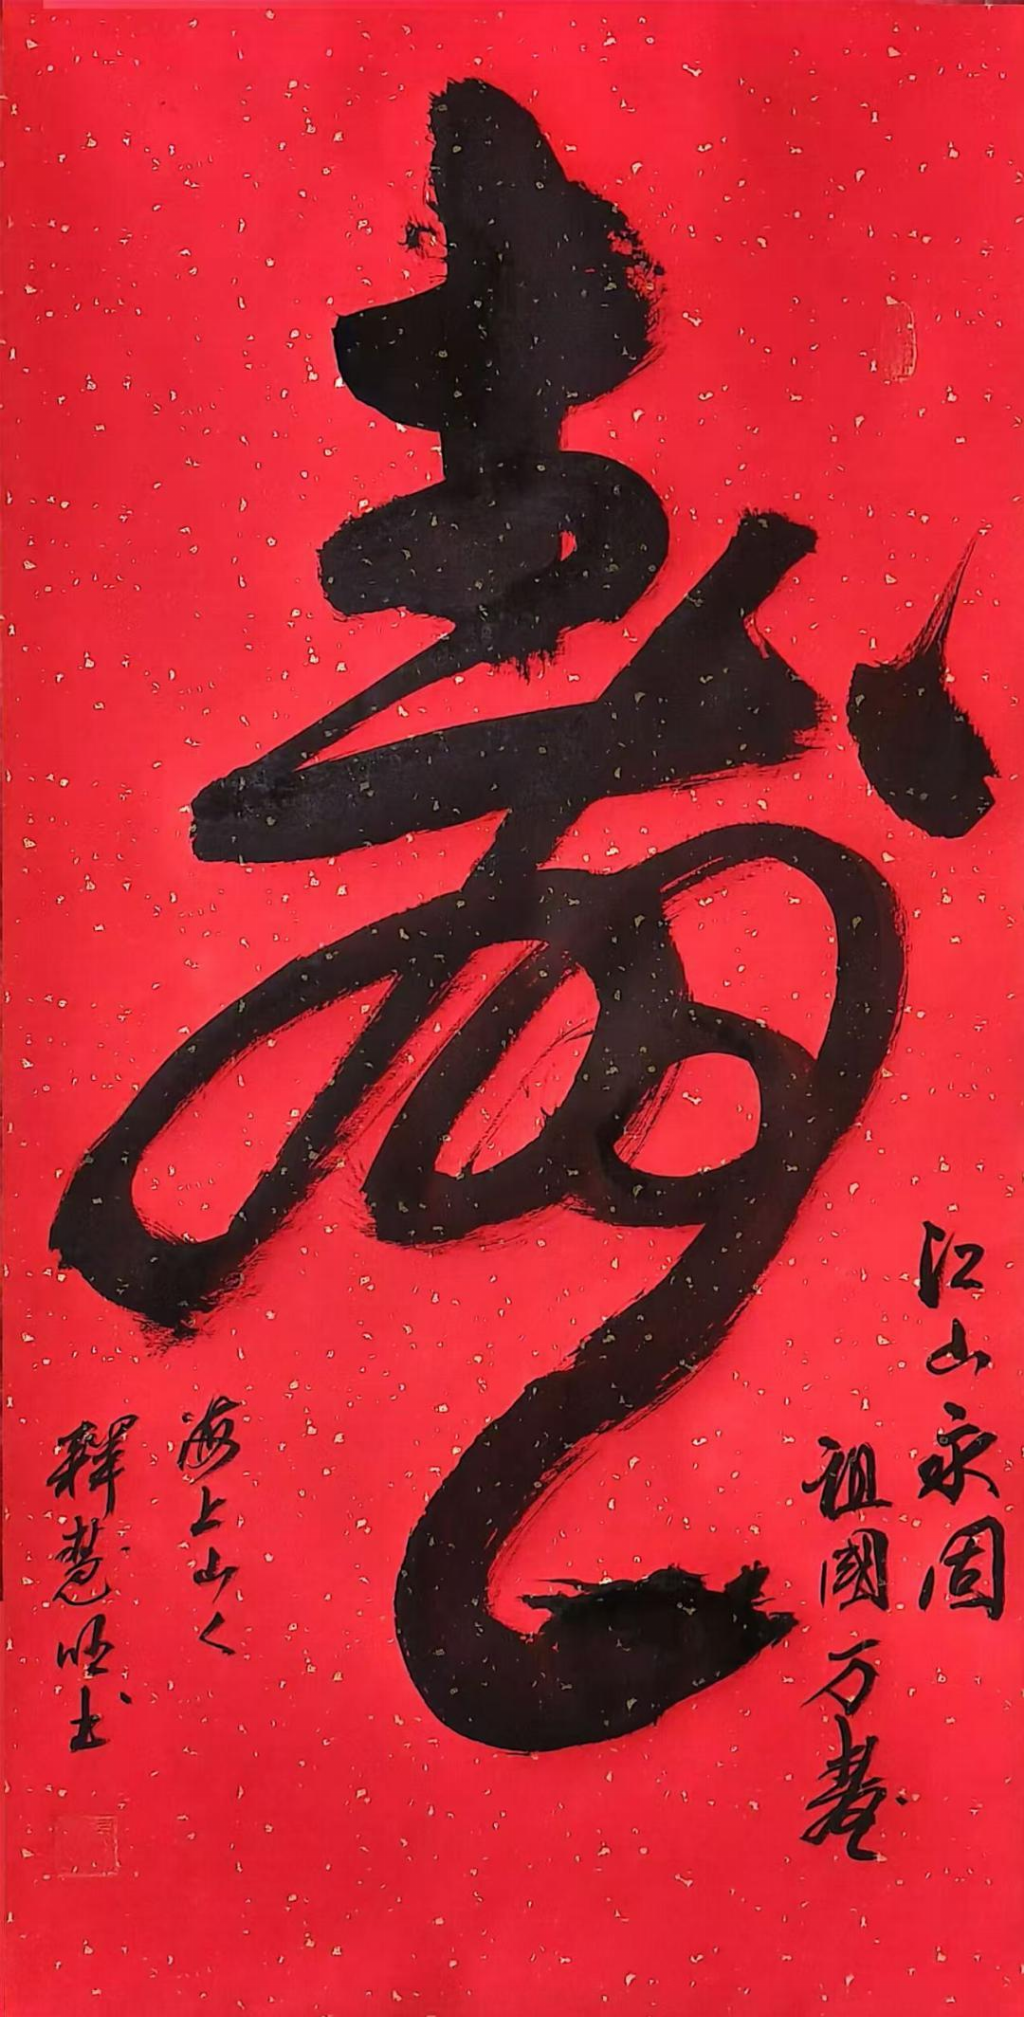 壽
江山永固
祖國万壽
海上山人
釋慧旺书